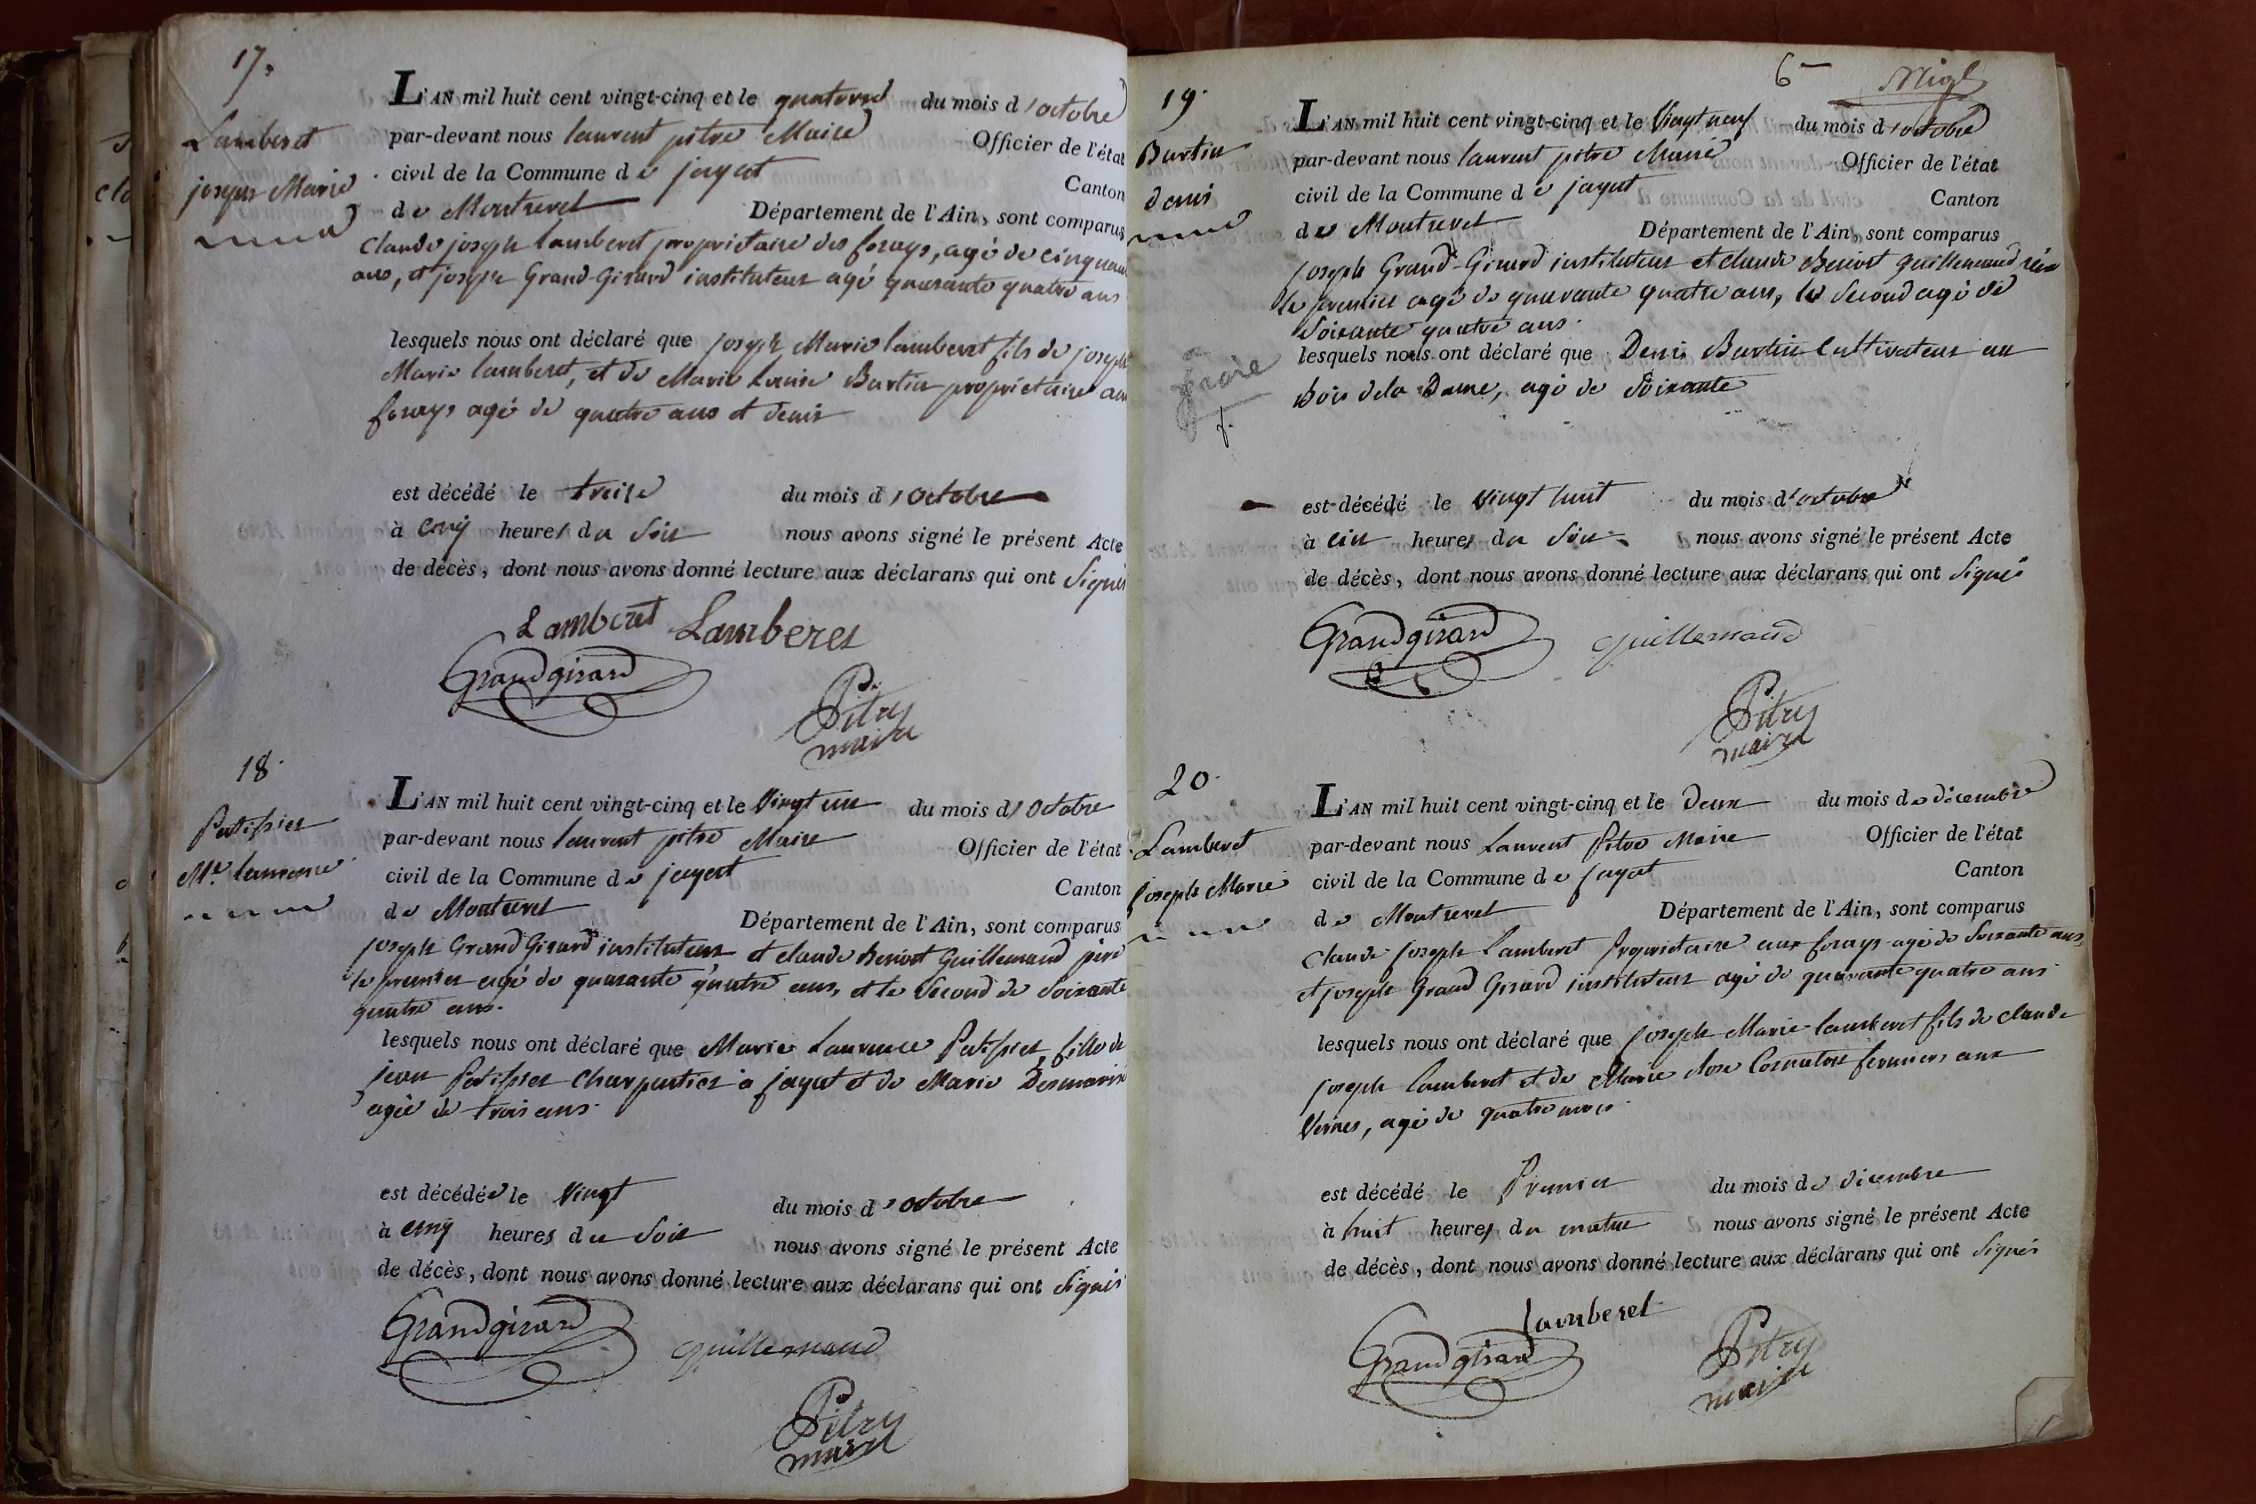 17.
Lamberet
joseph Marie
L'AN mil huit cent vingt-cinq et le quatorze du mois d'octobre
par-devant nous laurent pitre Maire Officier de l'état
civil de la Commune de jayat Canton
de Montrevel Département de l'Ain, sont comparus
Claude joseph lamberet propriétaire des forays, agé de cinquante
ans, et joseph Grand-Girard instituteur agé quarante quatre ans
lesquels nous ont déclaré que joseph Marie lamberet fils de joseph
Marie lamberet, et de Marie Louise Burtin propriétaire aux
forays agé de quatre ans et demi
est décédé le treize du mois d'octobre
à cinq heures du soir nous avons signé le présent Acte
de décès, dont nous avons donné lecture aux déclarans qui ont signés
Lamberet Lamberet
Grandgirard
Pitre
maire
18.
Patissier
Mie laurence
L'AN mil huit cent vingt-cinq et le vingt un du mois d'Octobre
par-devant nous laurent pitre Maire Officier de l'état
civil de la Commune de jayat Canton
de Montrevel Département de l'Ain, sont comparus
joseph Grand Girard instituteur et claude Benoit Guillemaud père
le premier agé de quarante quatre ans, et le second de soixante
quatre ans.
lesquels nous ont déclaré que Marie Laurence Patissier, fille de
jean Patissier charpentier à jayat et de Marie Desmaris
agée de trois ans.
est décédée le vingt du mois d'octobre
à cinq heures du soir nous avons signé le présent Acte
de décès, dont nous avons donné lecture aux déclarans qui ont signés
Grandgirard Guillemaud
Pitre
maire
6
19.
Burtin
denis
L'AN mil huit cent vingt-cinq et le vingt neuf du mois d'octobre
par-devant nous laurent pitre Maire Officier de l'état
civil de la Commune de jayat Canton
de Montrevel Département de l'Ain, sont comparus
joseph Grand-Girard instituteur et claude Benoit Guillemaud
le premier agé de quarante quatre ans, le second agé de
soixante quatre ans.
lesquels nous ont déclaré que Denis Burtin Cultivateur au
bois de la Dame, agé de soixante
est décédé le vingt huit du mois d'octobre
à heures du soir nous avons signé le présent Acte
de décès, dont nous avons donné lecture aux déclarans qui ont signés
Grandgirard Guillemaud
Pitre
maire
20.
Lamberet
joseph Marie
L'AN mil huit cent vingt-cinq et le deux du mois de décembre
par-devant nous Laurent Pitre Maire Officier de l'état
civil de la Commune de jayat Canton
de Montrevel Département de l'Ain, sont comparus
Claude joseph Lamberet Propriétaire aux forays agé de soixante ans,
et joseph Grand Girard instituteur agé de quarante quatre ans
lesquels nous ont déclaré que joseph Marie lamberet fils de claude
joseph lamberet et de Marie fermiers aux
Vernes, agé de quatre mois.
est décédé le Premier du mois de décembre
à huit heures du matin nous avons signé le présent Acte
de décès, dont nous avons donné lecture aux déclarans qui ont signés
lamberet
Grandgirard
Pitre
maire